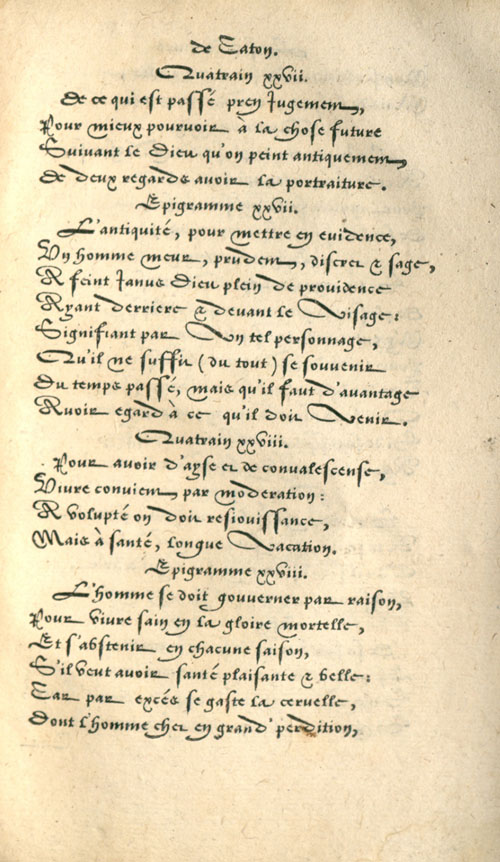 de Caton.
Quatrain xxvii.
De ce qui est passé pren jugement,
Pour mieux pourvoir à la chose future
Suivant le Dieu qu'on peint antiquement,
De deux regards avoir la portraiture.
Epigramme xxvii.
L'antiquité, pour mettre en evidence,
Un homme meur, prudent, discret & sage,
A feint Janus Dieu plein de providence
Ayant derriere & devant le Visage:
Signifiant par Un tel personnage,
Qu'il ne suffit (du tout) se souvenir
Du temps passé, mais qu'il faut d'avantage
Avoir egard à ce qu'il doit Venir.
Quatrain xxviii.
Pour avoir d'ayse et de convalescense,
Vivre convient par moderation:
A volupté on doit resiouissance,
Mais à santé, longue Vacation.
Epigramme xxviii.
L'homme se doit gouverner par raison,
Pour vivre sain en la gloire mortelle,
Et s'abstenir en chacune saison,
S'il veut avoir santé plaisante & belle:
Car par excés se gaste la cervelle,
Dont l'homme chet en grand' perdition,